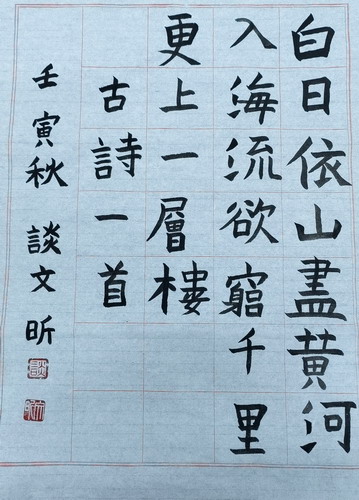 白日依山盡黄河
入海流欲窮千里
更上一層樓
古詩一首
壬寅秋 談文昕